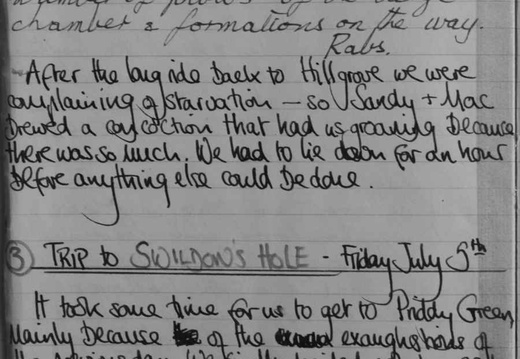 chamber & formations on the way.
Rabs.
After the long ride back to Hillgrove we were
complaining of starvation – so Sandy + Mac
brewed a concoction that had us groaning because
there was so much. We had to lie down for an hour
before anything else could be done.
③ TRIP to SWILDON'S HOLE - Friday July 5th
It took some time for us to get to Priddy Green,
Mainly because of the